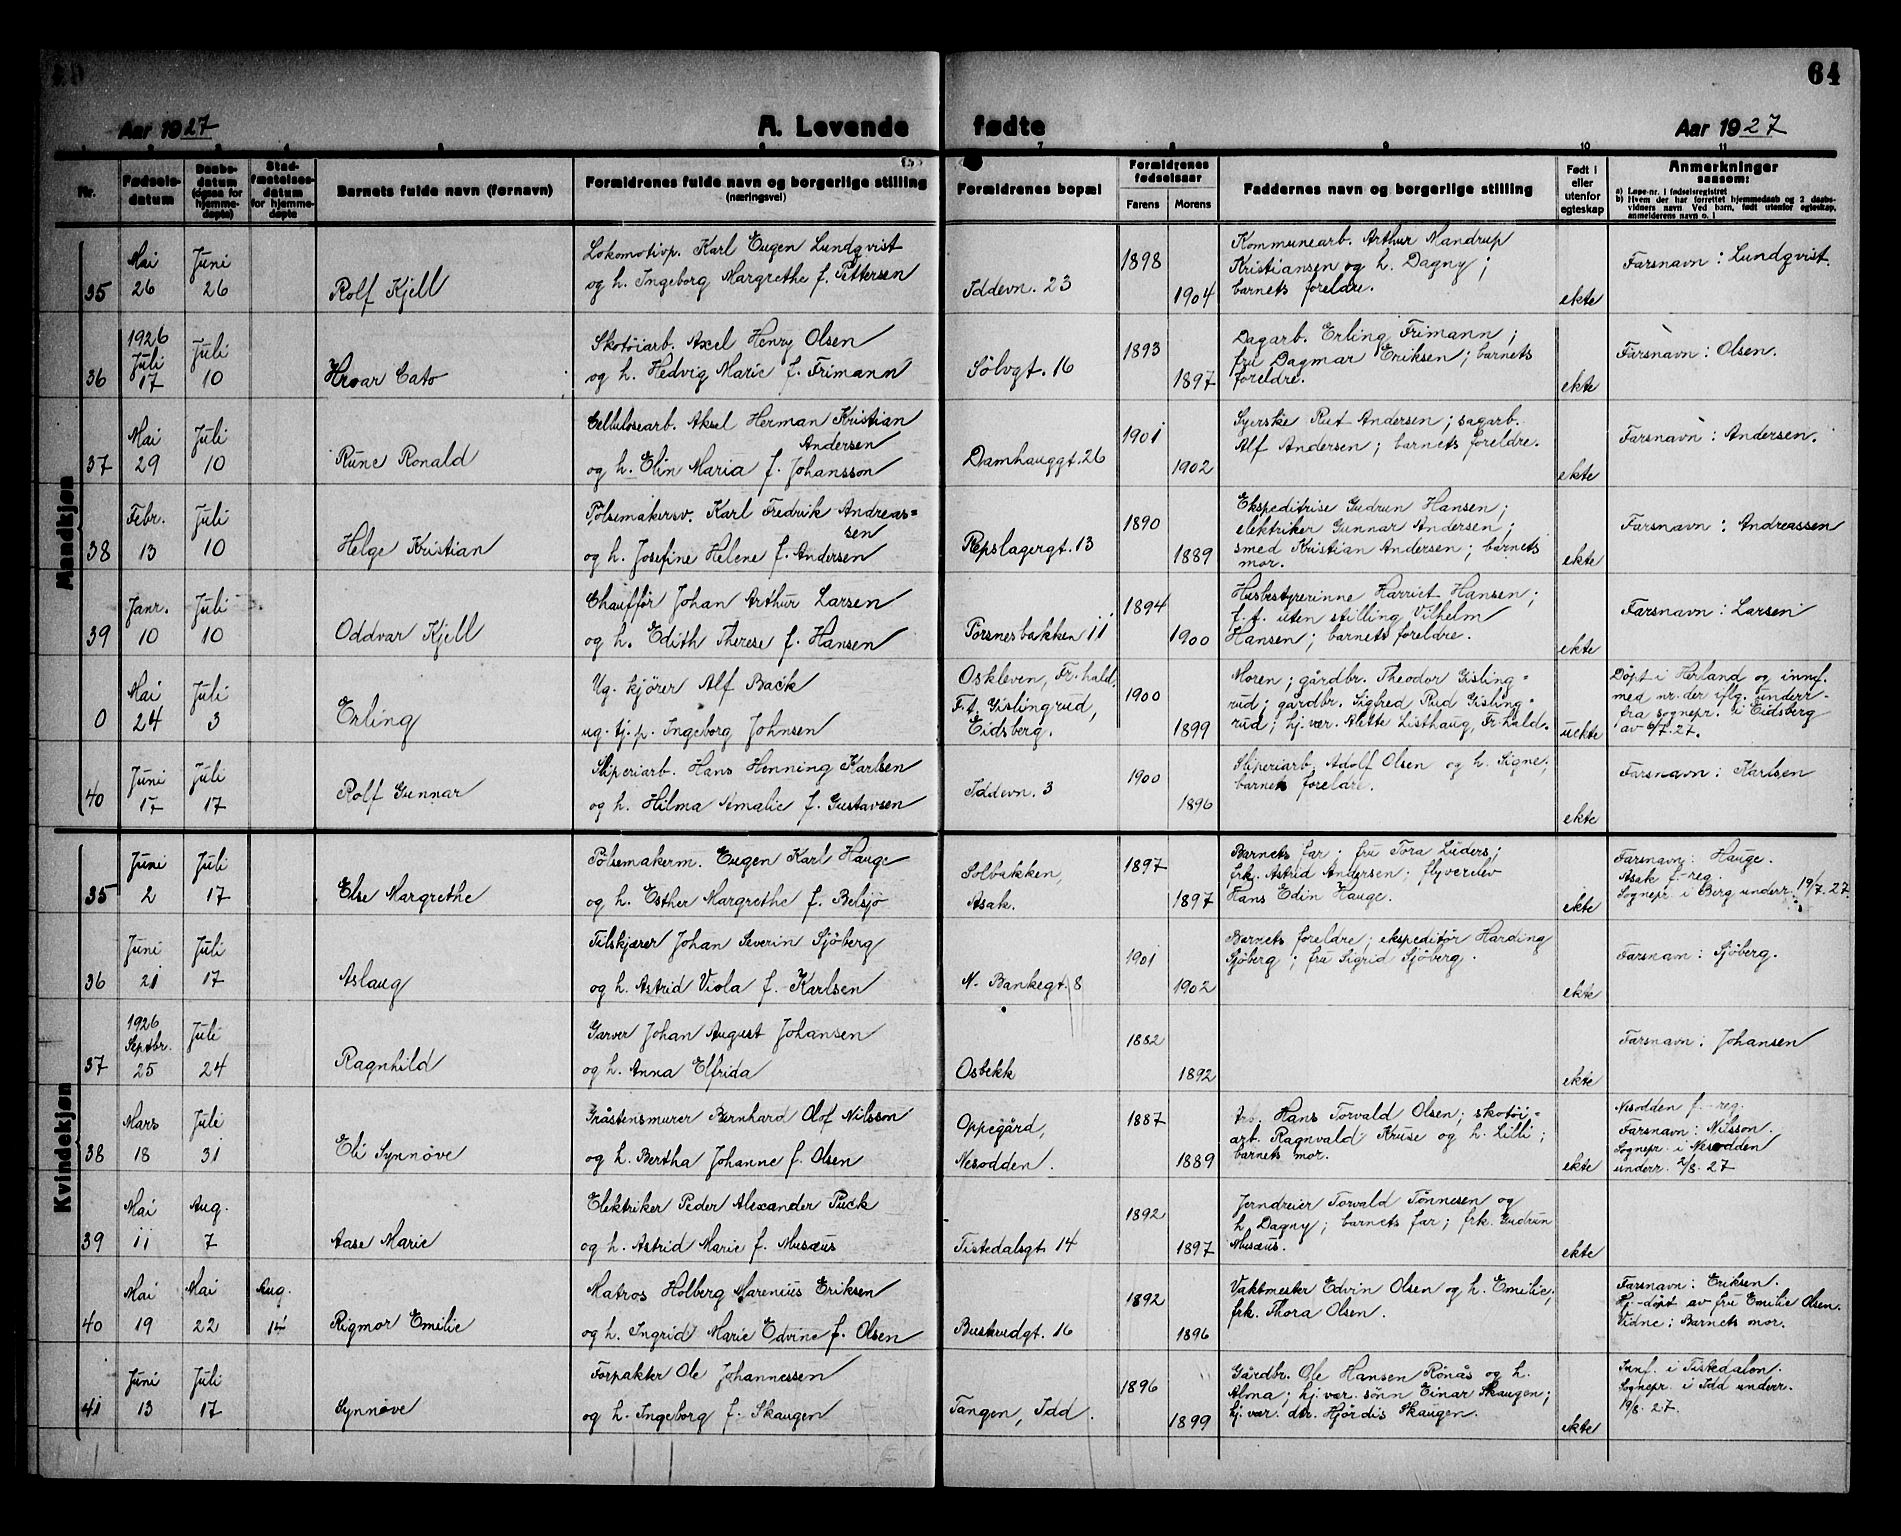 64
Aar 1927 A. Levende fødte Aar 1927
7 10 11
Nr.
Fødsels-
datum
Daabs-
datum
(ogsaa for
hjemme-
døpte)
Stad-
fæstelses-
datum
for hjemme-
døpte
Barnets fulde navn (fornavn)
Formldrenes fulde navn og borgerlige stilling
(næringsvei)
Formldrenes bopæl
Formldrenes
fødselsaar
Farens Morens
Faddernes navn og borgerlige stilling
Født i
eller
utenfor
egteskap
Anmerkninger
saasom:
a) Løpe-nr. i fødselsregistret
b) Hvem der har forrettet hjemmedaab og 2 daabs-
vidners navn Ved barn, født utenfor egteskap,
anmelderens navn o. l
Mandkjøn
35 Mai 26 Juni 26 Rolf Kjell
Lokomotivp. Karl Eugen Lundqvist
og h. Ingeborg Margrethe f. Pettersen
Iddevn. 23 1898 1904
Kommunearb. Arthur Mandrup
Kristiansen og h. Dagny;
barnets foreldre.
ekte Farsnavn: Lundqvist.
36 1926 Juli 17 Juli 10 Hroar Cato
Skotøiarb. Axel Henry Olsen
og h. Hedvig Marie f. Frimann
Sølvgt. 16 1893 1897
Dagarb. Erling Frimann;
fru Dagmar Eriksen; barnets
foreldre.
ekte Farsnavn: Olsen.
37 Mai 29 Juli 10 Rune Ronald
Cellulosearb. Aksel Herman Kristian
Andersen
og h. Elin Maria f. Johansson
Damhauggt. 26 1901 1902
Syerske Rut Andersen; sagarb.
Alf Andersen; barnets foreldre.
ekte Farsnavn: Andersen.
38 Febr. 13 Juli 10 Helge Kristian
Pølsemakersv. Karl Fredrik Andreas=
sen
og h. Josefine Helene f. Andersen
Repslagergt. 13 1890 1889
Ekspeditrise Gudrun Hansen;
elektriker Gunnar Andersen;
smed Kristian Andersen; barnets
mor.
ekte Farsnavn: Andreassen
39 Janr. 10 Juli 10 Oddvar Kjell
Chauffør Johan Arthur Larsen
og h. Edith Therese f. Hansen
Porsnesbakken 11 1894 1900
Husbestyrerinne Harriet Hansen;
f.t. uten stilling Vilhelm
Hansen; barnets foreldre.
ekte Farsnavn: Larsen
0 Mai 24 Juli 3 Erling
Ug. kjører Alf Back
ug. tj. p. Ingeborg Johnsen
Oskleven, Fr.hald.
F.t. Gislingrud,
Eidsberg.
1900 1899
Moren; gårdbr. Theodor Gisling=
rud; gårdbr. Sigfred Rud Gisling=
rud; hj.vær. Alette Listhaug, Fr.hald.
uekte
Døpt i Herland og innf.
med nr. der iflg. underr-
fra sognepr. i Eidsberg
av 6/7. 27.
40 Juni 17 Juli 17 Rolf Gunnar
Sliperiarb. Hans Henning Karlsen
og h. Hilma Amalie f. Gustavsen
Iddevn. 3 1900 1896
Sliperiarb. Adolf Olsen og h. Signe;
barnets foreldre.
ekte Farsnavn: Karlsen
Kvindekjøn
35 Juni 2 Juli 17 Else Margrethe
Pølsemakerm. Eugen Karl Hauge
og h. Esther Margrethe f. Belsjø
Solbakken,
Asak.
1897 1897
Barnets far; fru Tora Lüders;
frk. Astrid Andersen; flyverelev
Hans Edin Hauge.
ekte
Farsnavn: Hauge.
Asak f.-reg.
Sognepr. i Berg underr. 19/7. 27.
36 Juni 21 Juli 17 Aslaug
Tilskjærer Johan Severin Sjøberg
og h. Astrid Viola f. Karlsen
N. Bankegt. 8 1901 1902
Barnets foreldre; ekspeditør Harding
Sjøberg; fru Sigrid Sjøberg.
ekte Farsnan: Sjøberg.
37 1926 Septbr. 25 Juli 24 Ragnhild
Garver Johan August Johansen
og h. Anna Elfrida
Osbekk 1882 1892
ekte Farsnavn: Johansen
38 Mars 18 Juli 31 Eli Synnøve
Gråstensmurer Bernhard Olof Nilsson
og h. Bertha Johanne f. Olsen
Oppegård,
Nesodden.
1887 1889
Arb. Hans Torvald Olsen; skotøi=
arb. Ragnvald Kruse og h. Lilli;
barnets mor.
ekte
Nesodden f.-reg.
Farsnavn: Nilsson.
Sognepr. i Nesodden
underr. 2/8. 27
39 Mai 11 Aug. 7 Aase Marie
Elektriker Peder Alexander Puck
og h. Astrid Marie f. Musæus
Tistedalsgt. 14 1892 1897
Jerndreier Torvald Tønnesen og
h. Dagny; barnets far; frk. Gudrun
Musæus.
ekte
40 Mai 19 Mai 22 Aug. 14 Rigmor Emilie
Matros Holberg Marenius Eriksen
og h. Ingrid Marie Edvine f. Olsen
Buskrudgt. 16 1892 1896
Vaktmester Edvin Olsen og h. Emilie;
frk. Thora Olsen.
Farsnavn: Eriksen.
Hj.-døpt av fru Emilie Olsen.
Vidne: Barnets mor.
41 Juni 13 Juli 17 Synnøve
Forpakter Ole Johannessen
og h. Ingeborg f. Skaugen
Tangen, Idd. 1896 1899
Gårdbr. Ole Hansen Rønås og h.
Alma; hj.vær. sønn Einar Skaugen;
hj.vær. dtr. Hjørdis Skaugen.
ekte
Innf. i Tistedalen.
Sognepr. i Idd underr.
19/8. 27.